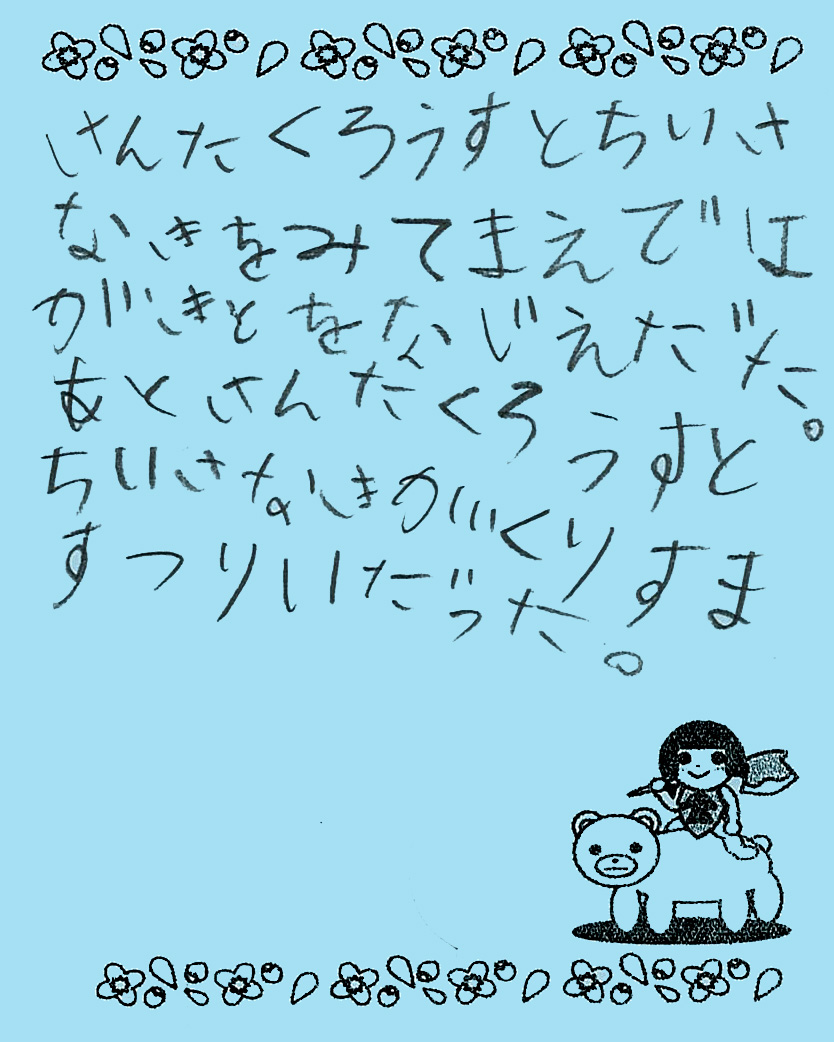 さんたくろうすとちいさ
なきをみてまえでは
がきとをなじえだだ。
あとさんたくろうすと
ちいさなきがくりすま
すつりいだった。